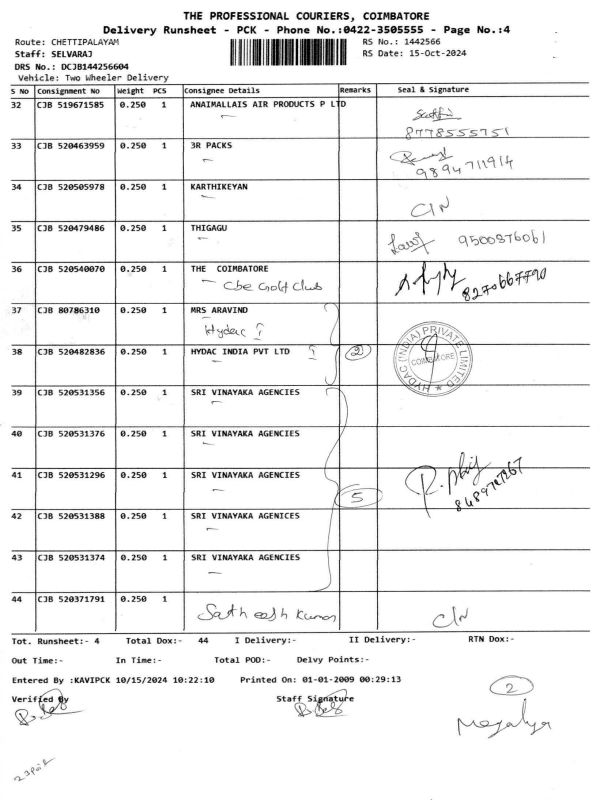 THE PROFESSIONAL COURIERS, COIMBATORE
Delivery Runsheet - PCK - Phone No.:0422-3505555 - Page No.:4
Route: CHETTIPALAYAM RS No.: 1442566
Staff: SELVARAJ RS Date: 15-Oct-2024
DRS No.: DCJB144256604
Vehicle: Two Wheeler Delivery
S No Consignment No Weight PCS Consignee Details Remarks Seal & Signature
32 CJB 519671585 0.250 1 ANAIMALLAIS AIR PRODUCTS P LTD
8778555751
33 CJB 520463959 0.250 1 3R PACKS
9894711914
34 CJB 520505978 0.250 1 KARTHIKEYAN
C/N
35 CJB 520479486 0.250 1 THIGAGU
9500876061
36 CJB 520540070 0.250 1 THE COIMBATORE
Cbe Golf Club 8270667790
37 CJB 80786310 0.250 1 MRS ARAVIND
Hydac
38 CJB 520482836 0.250 1 HYDAC INDIA PVT LTD 2
HYDAC (INDIA) PRIVATE LIMITED
COIMBATORE
39 CJB 520531356 0.250 1 SRI VINAYAKA AGENCIES
40 CJB 520531376 0.250 1 SRI VINAYAKA AGENCIES
41 CJB 520531296 0.250 1 SRI VINAYAKA AGENCIES
5
42 CJB 520531388 0.250 1 SRI VINAYAKA AGENICES
43 CJB 520531374 0.250 1 SRI VINAYAKA AGENCIES
44 CJB 520371791 0.250 1
Satheesh Kumar C/N
Tot. Runsheet:- 4 Total Dox:- 44 I Delivery:- II Delivery:- RTN Dox:-
Out Time:- In Time:- Total POD:- Delvy Points:-
Entered By :KAVIPCK 10/15/2024 10:22:10 Printed On: 01-01-2009 00:29:13
Verified By Staff Signature
2